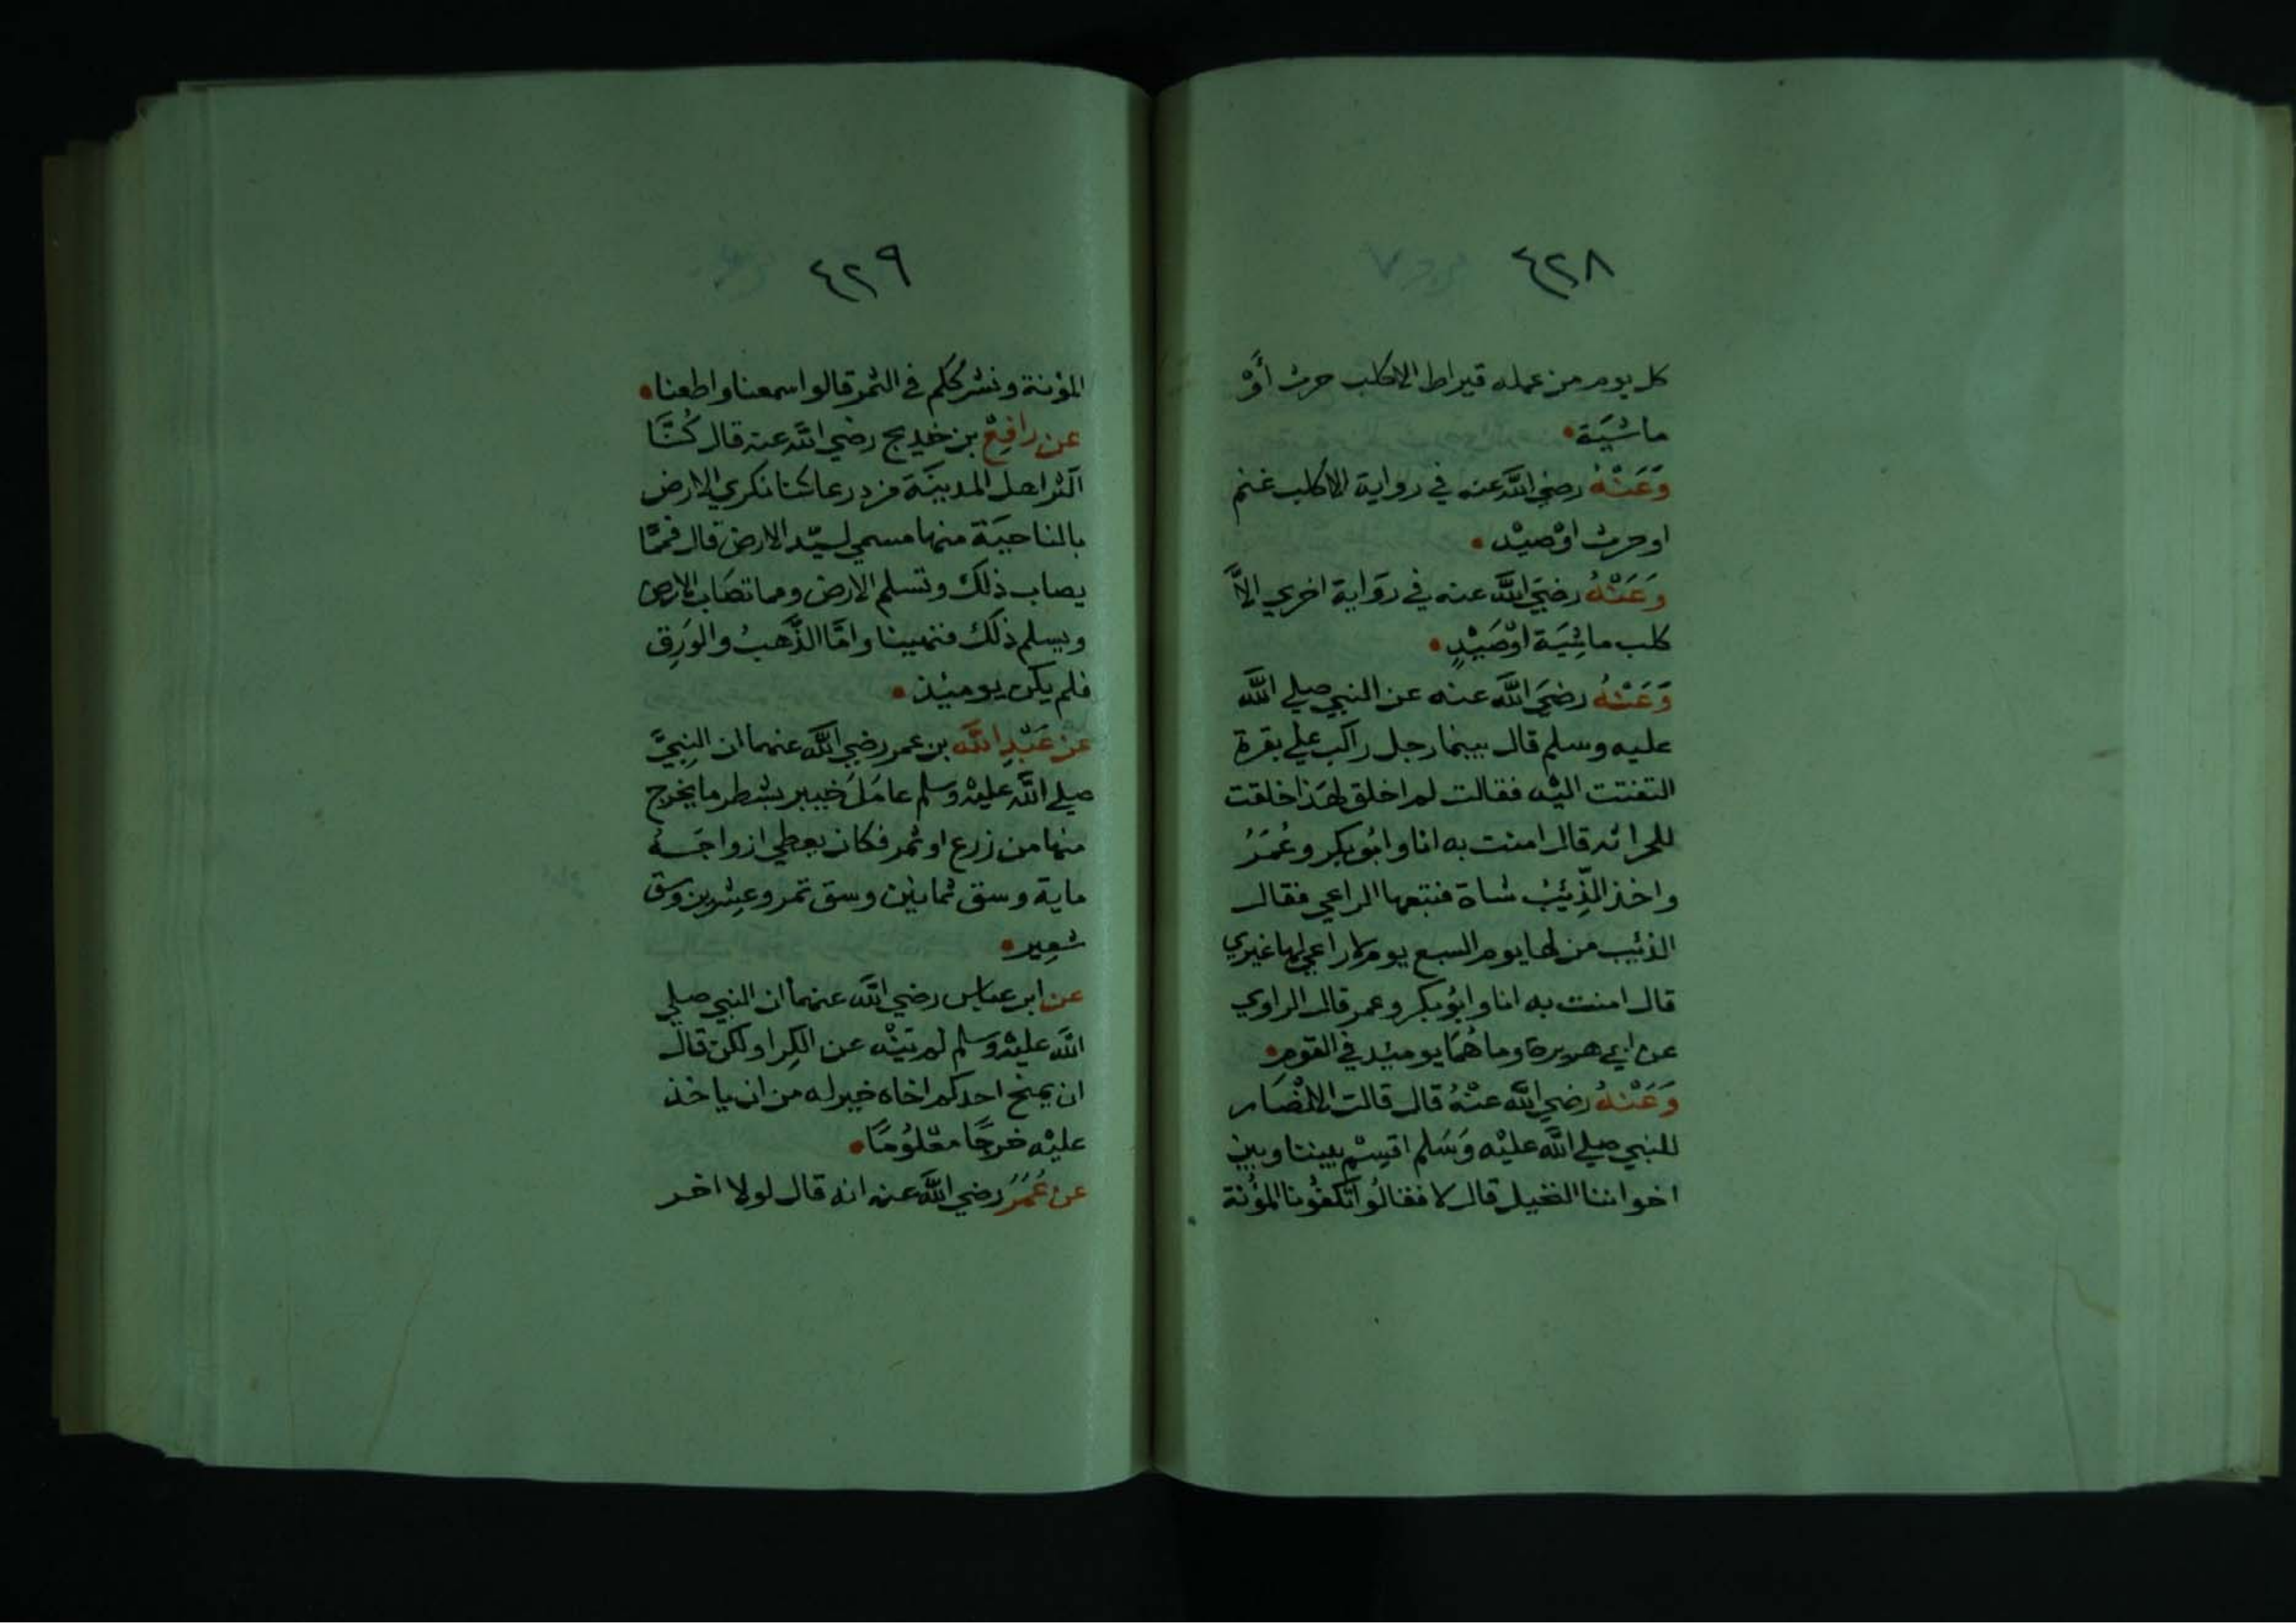 ٤٢٨
كل يوم من عمله قيراط الا كلب حرث أَوْ
ماشيَة
وَعَنْهُ رضي اللَّه عنه في رواية الا كلب غنم
او حرث اوْ صيْد
وَعَنْهُ رضيَ اللَّه عنه في روَاية اخري الاَّ
كلب ماشِيَة اوْ صَيْدٍ
وَعَنْهُ رضيَ اللَّه عنه عن النبي صلي اللَّه
عليه وسلم قال بينما رجل راكب علي بقرة
التفتت اليْه فقالت لم اخلق لهَذا خلقت
للحراثه قال امنت به انا وابُو بكر وعُمَرُ
واخذ الذِّئبُ شاة فتبعها الراعي فقال
الذئب من لها يوم السبع يوم لا راعي لها غيري
قال امنت به انا وابوُ بكر وعمر قال الراوي
عن ابي هريرة وما هُمَا يوميئد في القوم
وَعَنْهُ رضي اللَّه عنْهُ قال قالت الانْصَار
للنبي صلي اللَّه عليْه وَسَلم اقسِمْ بيننا وبين
اخواننا النخيل قال لا فقالوُا تَكفُونا المؤُنة
٤٢٩
المؤنة ونشرككم في الثمر قالوا سمعنا واطعنا
عن رافِعْ بن خديج رضي اللَّه عنه قال كُنَّا
اكثر اهل المدينَة مزدرعا كنا نكري الارض
بالناحيَة منها مسمي لسيّد الارض قال فممَّا
يصاب ذلك وتسلم الارض ومما تصَاب الارض
ويسلم ذلك فنهينا وامَّا الذَّهبُ والوَرِق
فلم يكن يوميئذ
عَنْ عَبْدِ اللَّه بن عمر رضي اللَّه عنهما ان النبِيَّ
صلي اللَّه عليْه وَسلم عامَلَ خيبر بشطر ما يخرج
منها من زرع او ثمر فكان يعطي ازواجَهُ
ماية وسق ثمانين وسق تمر وعِشرين وسق
شعِير
عن ابن عباس رضي اللَّه عنهما ان النبي صلي
اللَّه عليْه وَسلم لم يَنْه عن الكِرا ولكن قال
ان يمنح احدكم اخاه خير له من ان ياخذ
عليْه خرجًا معْلُومًا
عن عُمَرَ رضي اللَّه عنه انه قال لولا اخر